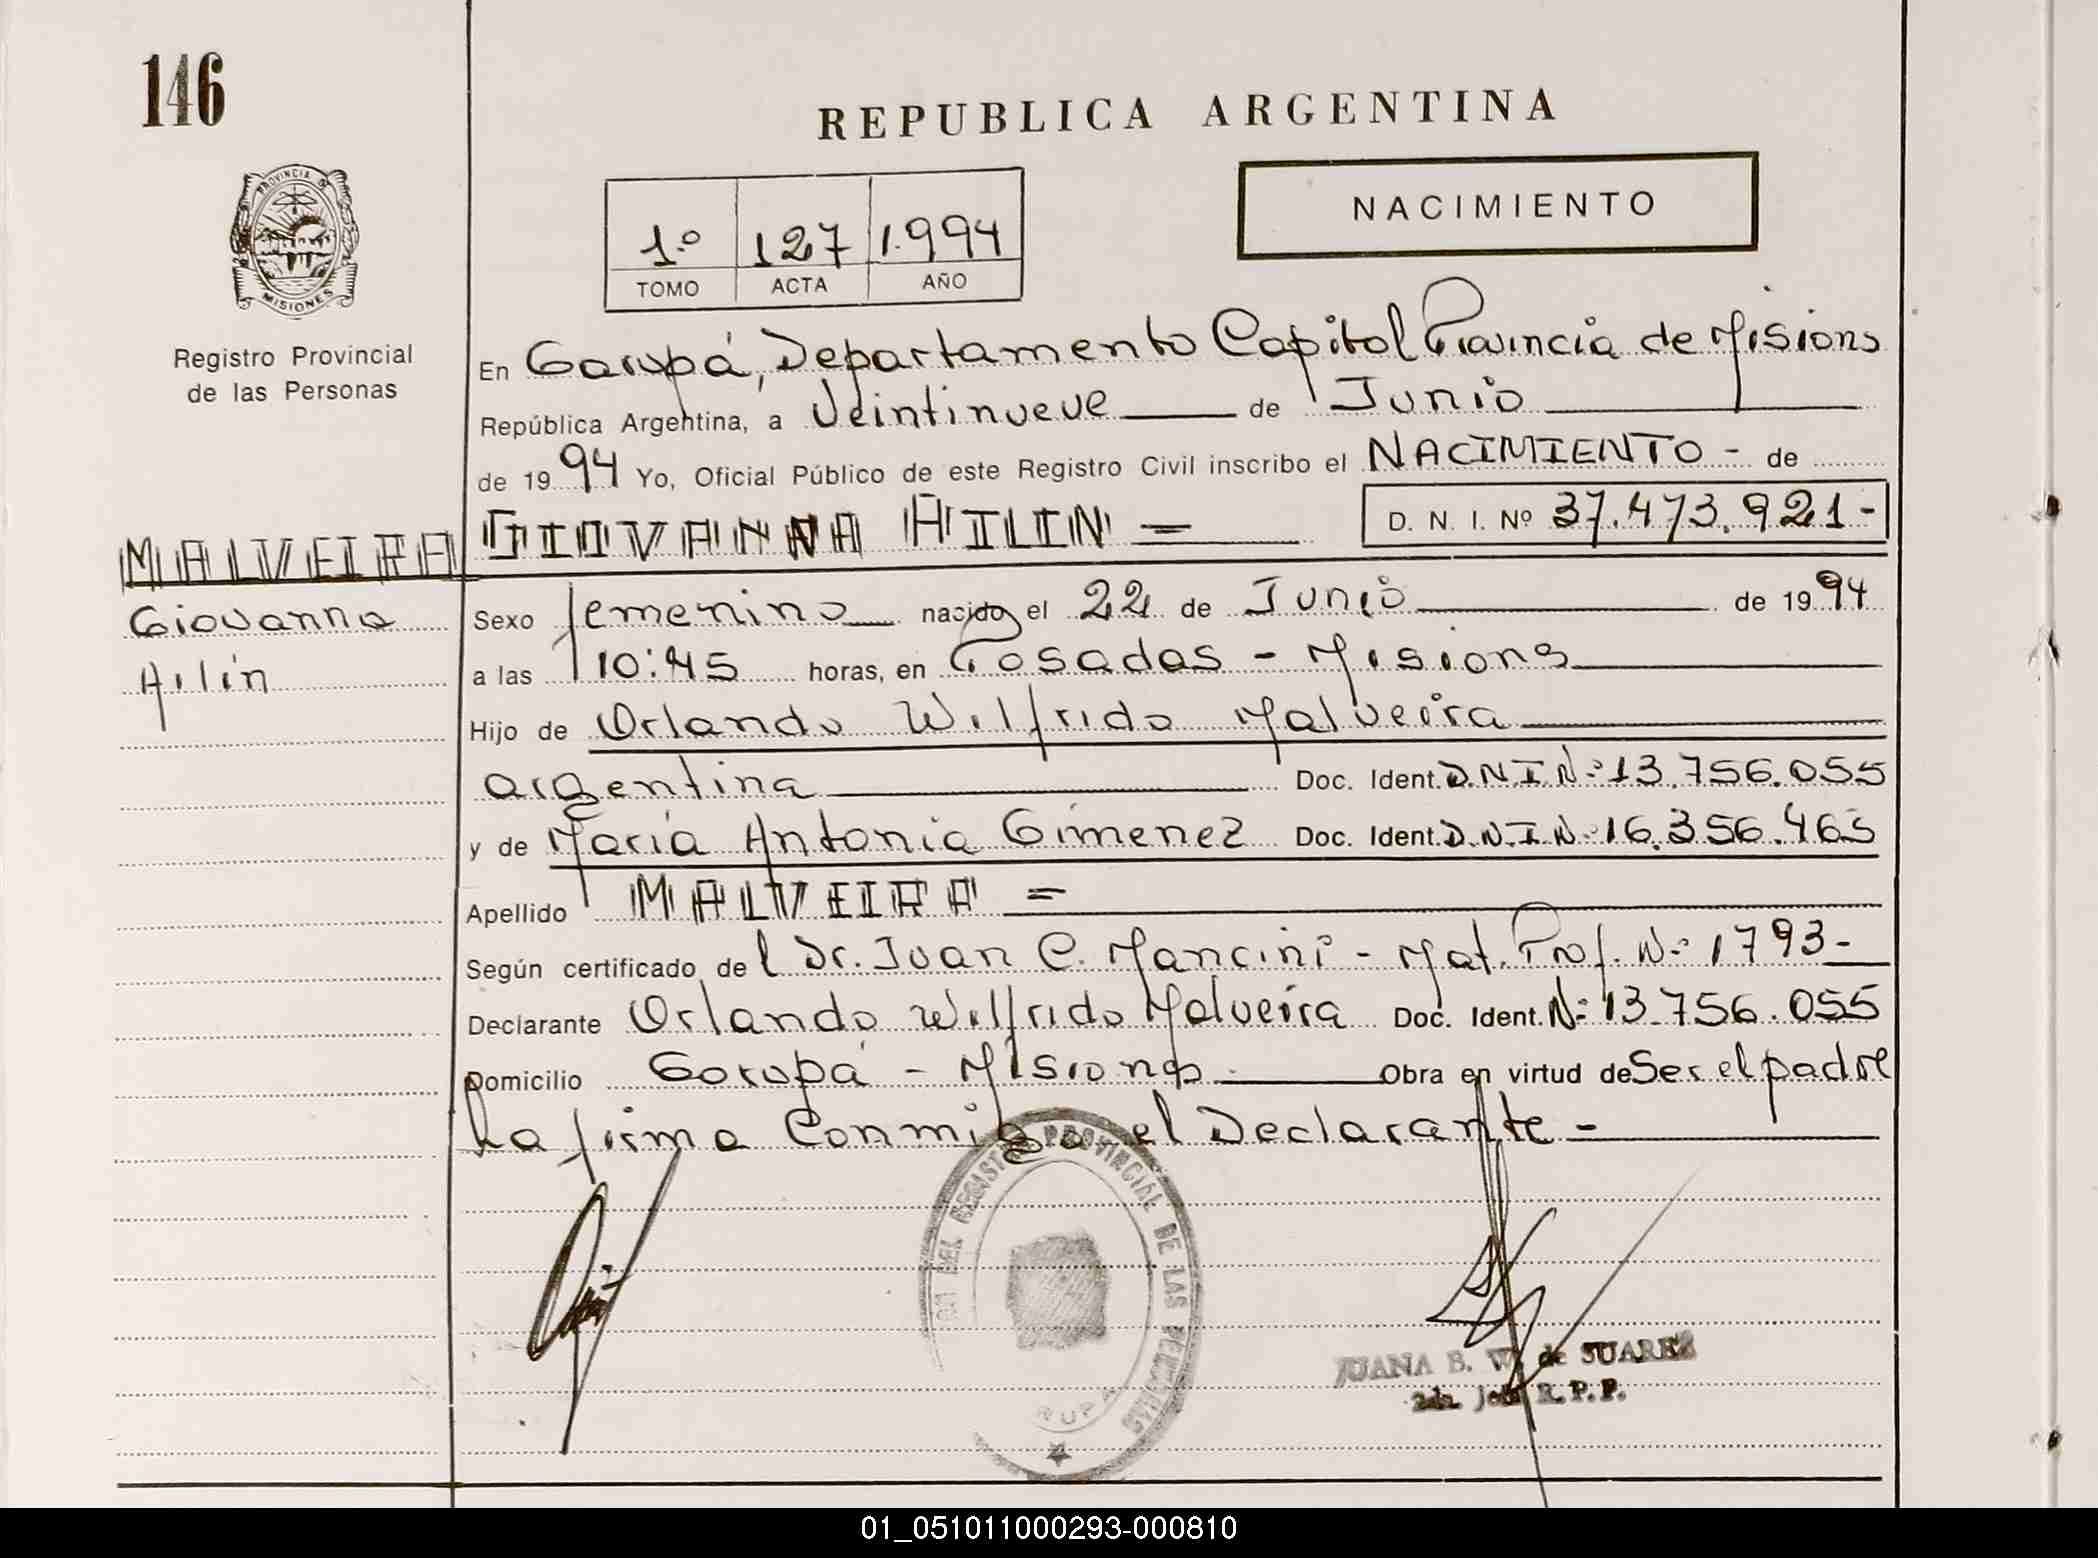 146
REPUBLICA ARGENTINA
PROVINCIA DE
MISIONES
Registro Provincial
de las Personas
1.º 127 1.994
TOMO ACTA AÑO
NACIMIENTO
En Garupá, Departamento Capital Provincia de Misiones
República Argentina, a Veintinueve de Junio
de 1994 Yo, Oficial Público de este Registro Civil inscribo el NACIMIENTO - de
MALVEIRA GIOVANNA AILIN = D. N. I. Nº 37.473.921-
Giovanna
Ailín
Sexo femenino nacido el 22 de Junio de 1994
a las 10:45 horas, en Posadas - Misiones
Hijo de Orlando Wilfrido Malveira
argentina Doc. Ident. D.N.I.N:º 13.756.055
y de María Antonia Gimenez Doc. Ident. D.N.I.N:º 16.356.465
Apellido MALVEIRA =
Según certificado de l Dr. Juan C. Mancini - Mat. Prof. Nº 1793-
Declarante Orlando Wilfrido Malveira Doc. Ident. Nº 13.756.055
Domicilio Garupá - Misiones Obra en virtud de Ser el padre
La firma Conmigo el Declarante -
DEL REGISTRO PROVINCIAL DE LAS PERSONAS
JUANA B. W. de SUAREZ
2da. Jefe R. P. P.
01_051011000293-000810